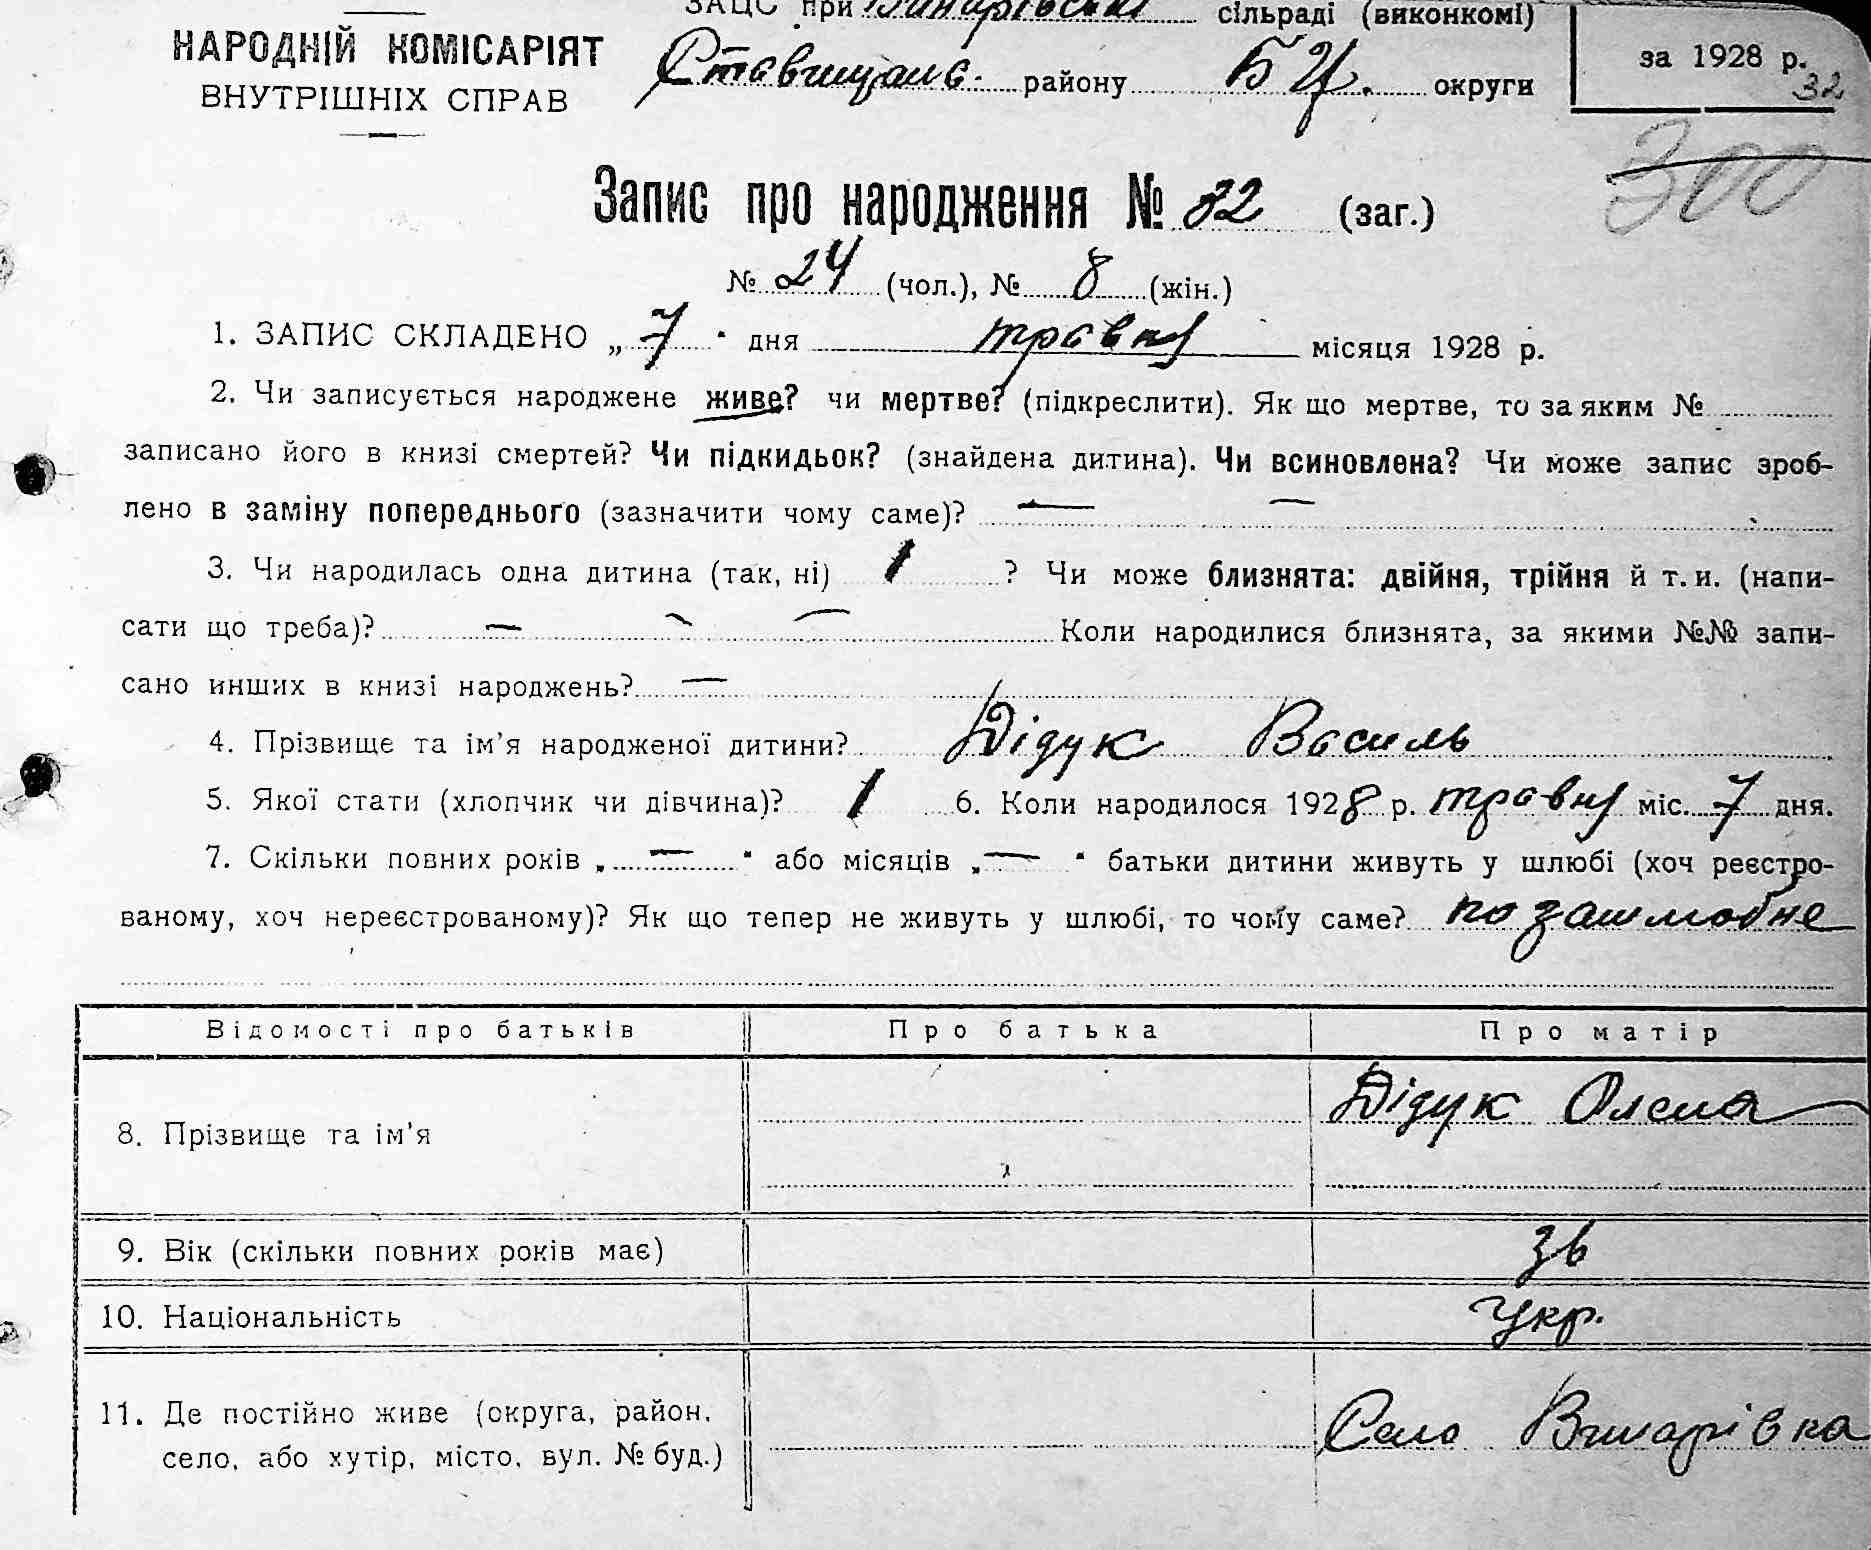 ЗАЦС при Винарівській сільраді (виконкомі)
НАРОДНІЙ КОМІСАРІЯТ
ВНУТРІШНІХ СПРАВ
району Б Ц. округи
за 1928 р.
32
300
Запис про народження № 32 (заг.)
№ 24 (чол.), № 8 (жін.)
1. ЗАПИС СКЛАДЕНО „ 7 " дня травня місяця 1928 р.
2. Чи записується народжене живе? чи мертве? (підкреслити). Як що мертве, то за яким №
записано його в книзі смертей? Чи підкидьок? (знайдена дитина). Чи всиновлена? Чи може запис зроб-
лено в заміну попереднього (зазначити чому саме)? — —
3. Чи народилась одна дитина (так, ні) 1 ? Чи може близнята: двійня, трійня й т. и. (напи-
сати що треба)? — — — Коли народилися близнята, за якими №№ запи-
сано инших в книзі народжень? —
4. Прізвище та ім'я народженої дитини? Дідук Василь
5. Якої стати (хлопчик чи дівчина)? 1 6. Коли народилося 1928 р. травня міс. 7 дня.
7. Скільки повних років „ — " або місяців „ — " батьки дитини живуть у шлюбі (хоч реєстро-
ваному, хоч нереєстрованому)? Як що тепер не живуть у шлюбі, то чому саме? позашлюбне
Відомості про батьків Про батька Про матір
8. Прізвище та ім'я Дідук Олена
9. Вік (скільки повних років має) 36
10. Національність Укр.
11. Де постійно живе (округа, район,
село, або хутір, місто, вул. № буд.) Село Винарівка